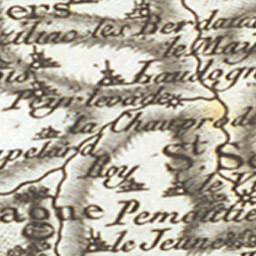 ers
uliac les Ber dau
le May
Laudogn
Peyrlevade
la Chauprod
apeland
St. Se
Roy
le V
aque Pemoutie
le Jeune